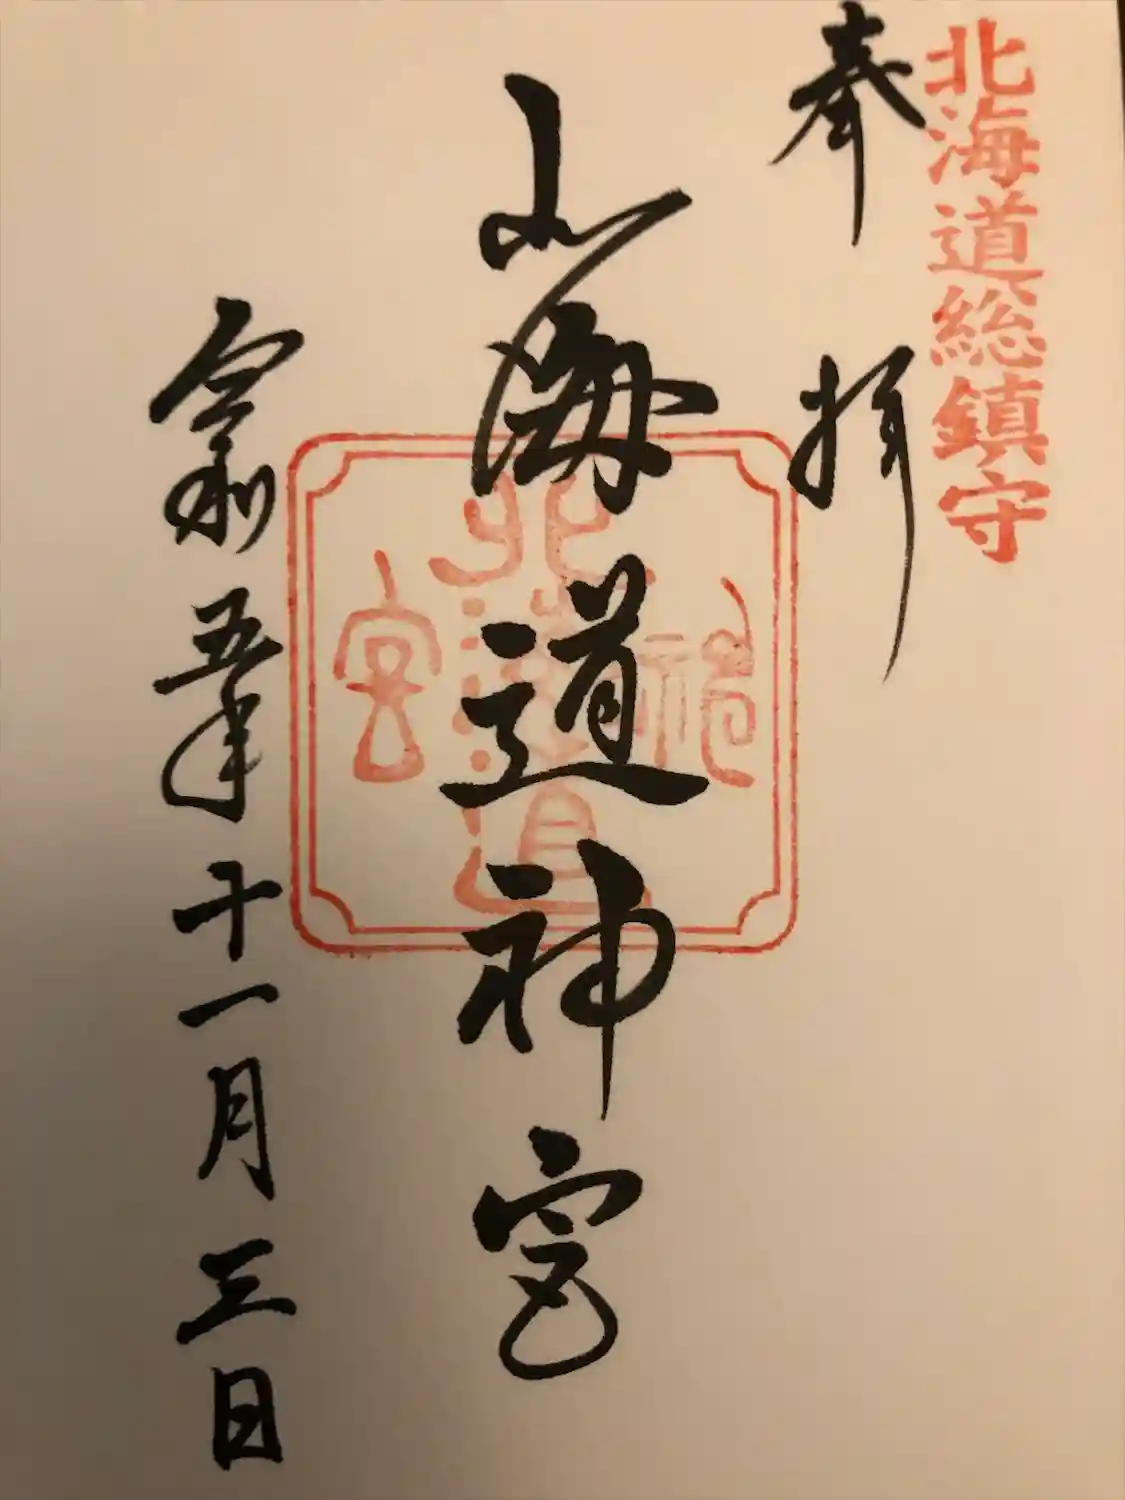 北海道総鎮守
奉拝
北海道神宮
北海道
神宮
令和五年十一月三日